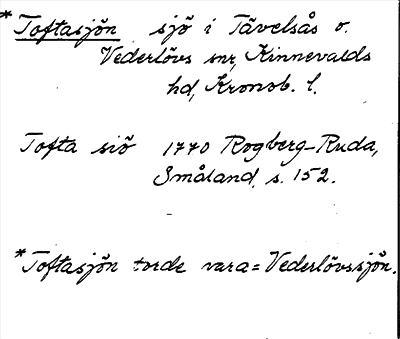 *Toftasjön sjö i Tävelsås o.
Vederlövs snr, Kinnevalds
hd, Kronob. l.
Tofta siö 1770 Rogberg-Ruda,
Småland, s. 152.
*Toftasjön torde vara = Vederlövssjön.